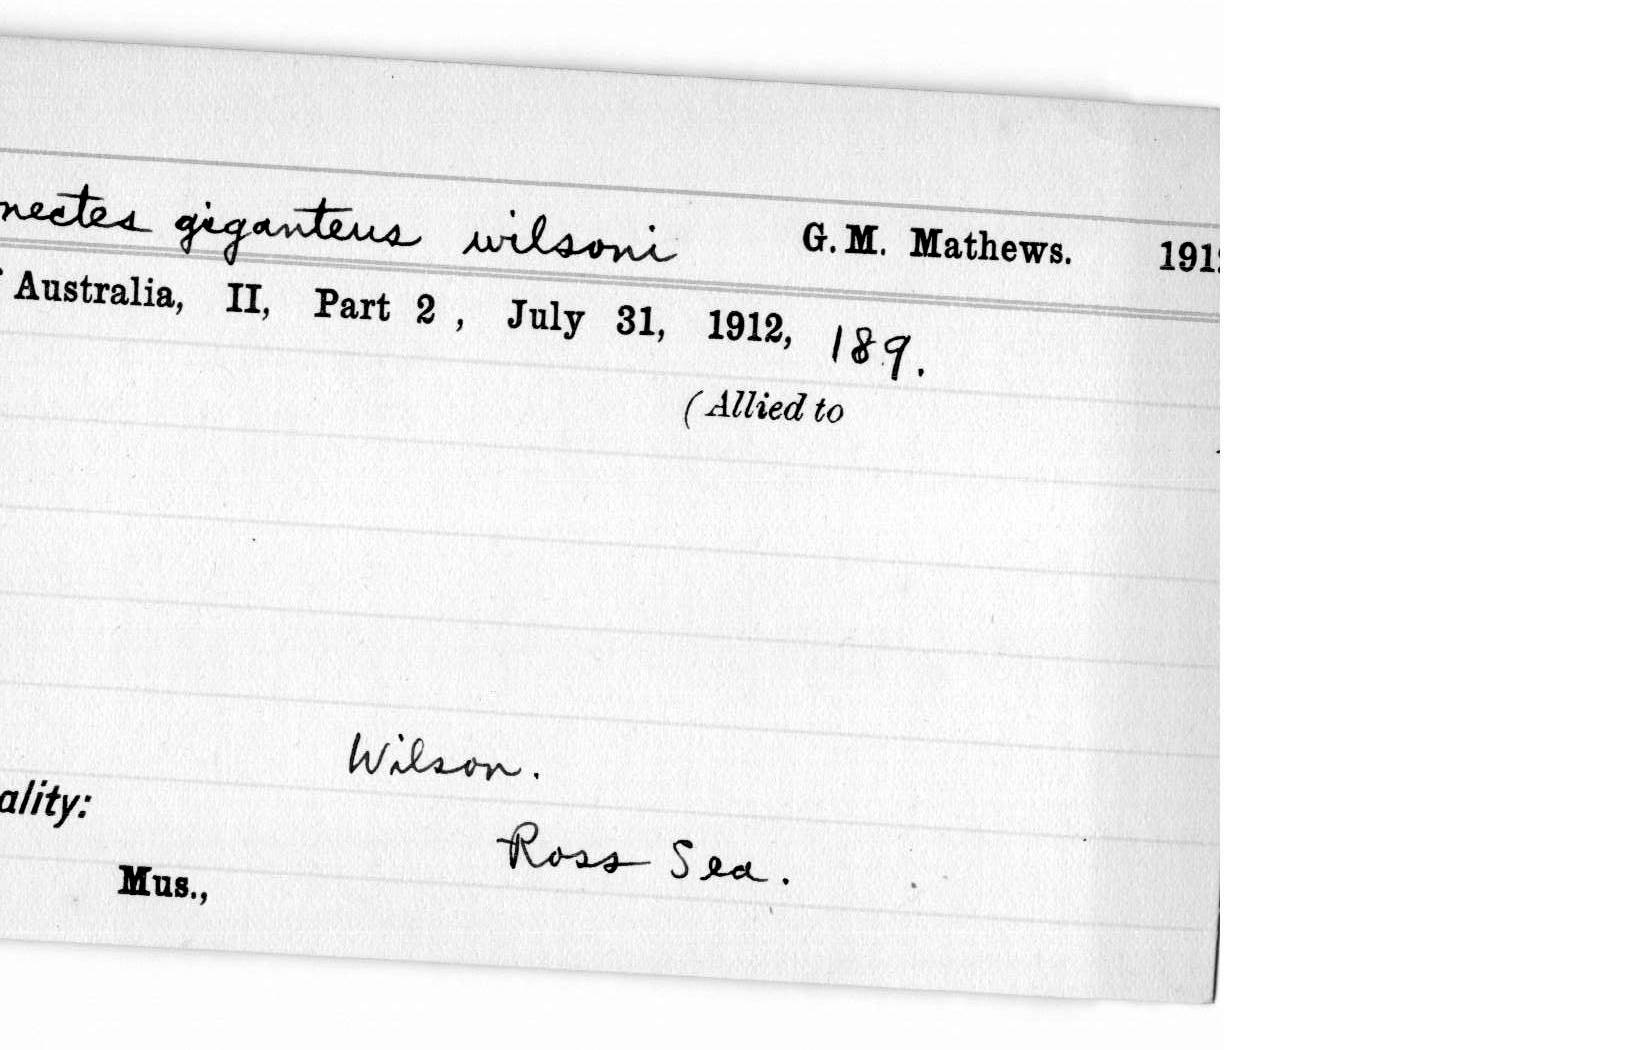 nectes giganteus wilsoni G. M. Mathews. 191
Australia, II, Part 2, July 31, 1912, 189.
(Allied to
Wilson.
ality:
Ross Sea.
Mus.,